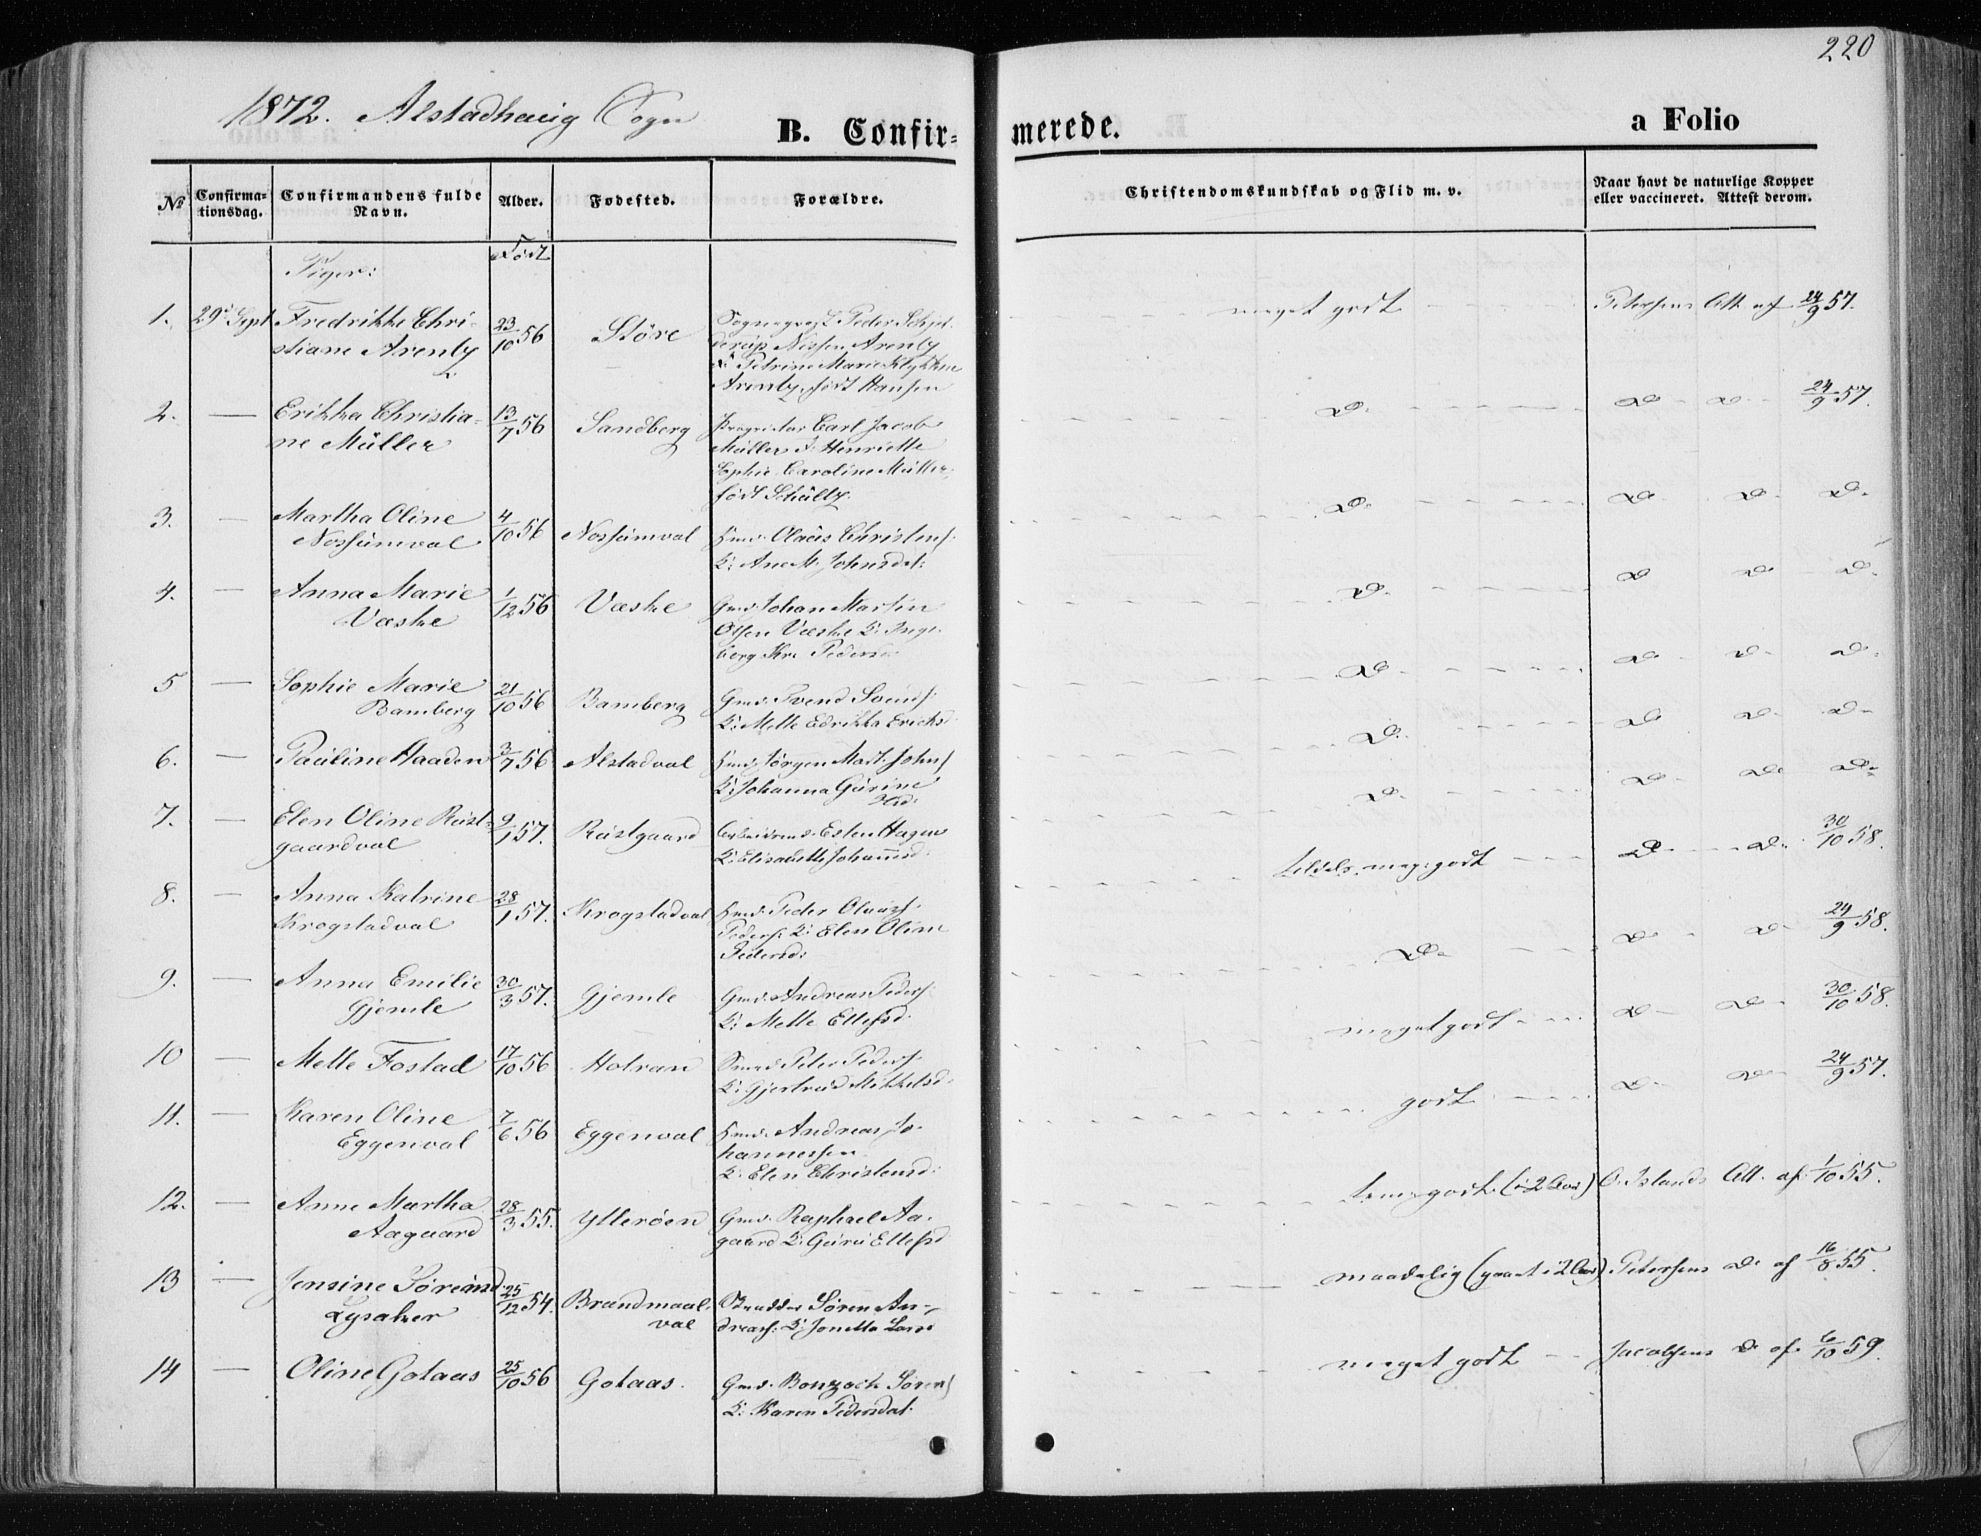 220
1872. Alstadhaug Sogn
B. Confir-
merede.
a Folio
No
Confirma-
tionsdag.
Confirmandens fulde
Navn.
Alder.
Fødested.
Forældre.
Christendomskundskab og Flid m. v.
Naar havt de naturlige Kopper
eller vaccineret. Attest derom.
Piger:
Født
1. 29' Sept Fredrikke Chri-
stiane Arentz
23/10 56
Störe
Peder
Nissen Arentz
Petrine Marie
Arentz, født Hansen
meget godt
Petersens Att. af 24/9 57.
2. — Erikka Christia-
ne Müller
13/7 56
Sandberg
Carl Jacob
Müller & Henriette
Sophie Caroline Müller
født Schültz.
Do
Do Do 24/9 57.
3. — Martha Oline
Nossumval
4/10 56
Nossumval
Hmd. Olaüs Christens.
K: Ane M. Johnsdt:
Do
Do Do Do
4. — Anna Marie
Væske
1/12 56
Væske
Gmd. Johan Martin
Olsen Væske K: Inge-
berg Pedersd:
Do
Do Do Do
5 — Sophie Marie
Bamberg
21/10 56
Bamberg
Gmd. Svend Svends.
K: Mette Edrikka Ericksd
Do
Do Do Do
6. — Pauline Haaden
3/7 56
Alstadval
Hmd. Jörgen Mart. Johns
K: Johanna Gurine
Do
Do Do Do
7. — Elen Oline Rüst-
gaardval
9/1 57.
Rüstgaard
Esten Hagen
K: Elisabeth Johannsd.
Do
Do Do Do
8. — Anna Katrine
Krogstadval
28/1 57.
Krogstadval
Hmd. Peder Olaüs
Peders. K: Elen Oline
Pedersd:
tildels meg. godt
Do Do 30/10 58.
9. — Anna Emilie
Gjemle
30/3 57.
Gjemle
Gmd. Andreas Peders.
K: Mette Ellefsd.
Do
Do Do 24/9 58.
10 — Mette Fostad
17/10 56
Holran
Smed Peter Peders.
K: Gjertrud Mikkelsd.
meget godt
Do Do 30/10 58.
11. — Karen Oline
Eggenval
7/6 56
Eggenval
Hmd. Andreas Jo-
hannessen
K: Elen Christensd:
godt
Do Do 24/9 57.
12. — Anne Martha
Aagaard
28/3 55.
Ytterøen
Gmd. Raphael Aa-
gaard K: Guru Ellefsd
godt (i 2 Aar)
O. Islands Att. af 1/10 55.
13 — Jensine Sörine
Lysaker
25/12 54.
Brandmaal-
val
Sören An-
dreas. K: Jonetta Lars
maadelig (gaaet i 2 Aar)
Petersens Do af 16/8 55.
14 — Oline Gotaas
25/10 56
Gotaas.
Gmd. Bonzach Sörens
K: Karen Pedersdat.
meget godt
Jacobsens Do af 6/10 59.